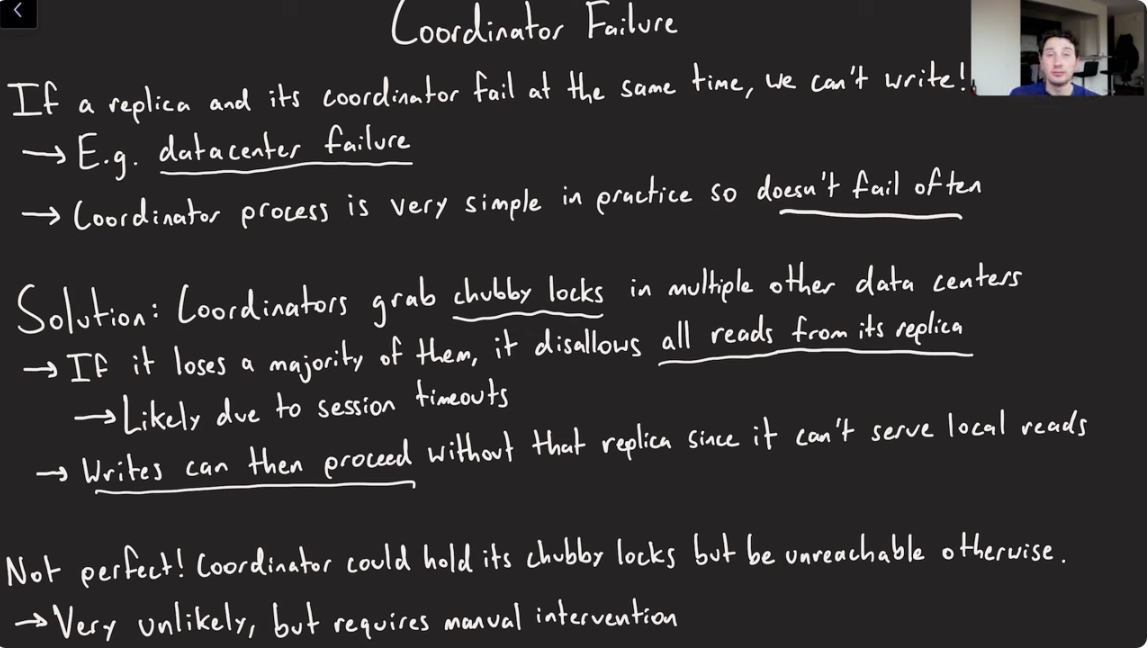 Coordinator Failure
If a replica and its coordinator fail at the same time, we can't write!
→ E.g. datacenter failure
→ Coordinator process is very simple in practice so doesn't fail often
Solution: Coordinators grab chubby locks in multiple other data centers
→ If it loses a majority of them, it disallows all reads from its replica
→ Likely due to session timeouts
→ Writes can then proceed without that replica since it can't serve local reads
Not perfect! Coordinator could hold its chubby locks but be unreachable otherwise.
→ Very unlikely, but requires manual intervention